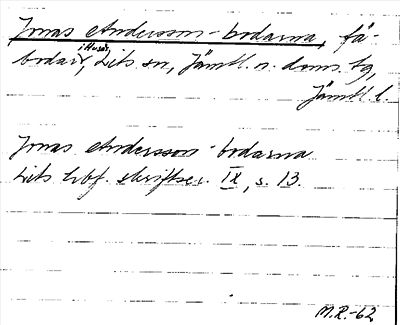 Jonas Andersson-bodarna, fä-
bodar i Huså, Lits sn, Jämtl. n. doms. tg,
Jämtl. l.
Jonas Andersson-bodarna
Lits hbf. skriftser. IX, s. 13.
M.R.-62